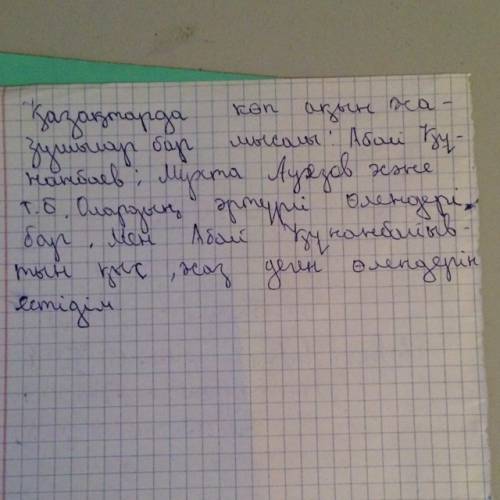 Қазақтарда көп ақын жа-
зушылар бар мысалы: Абай Құ-
нанбаев; Мұхта Ауезов және
т.б. Олардың әртүрлі өлендері
бар. Мен Абай Құнанбайыв-
тын қыс, жаз деген өлендерін
естідім